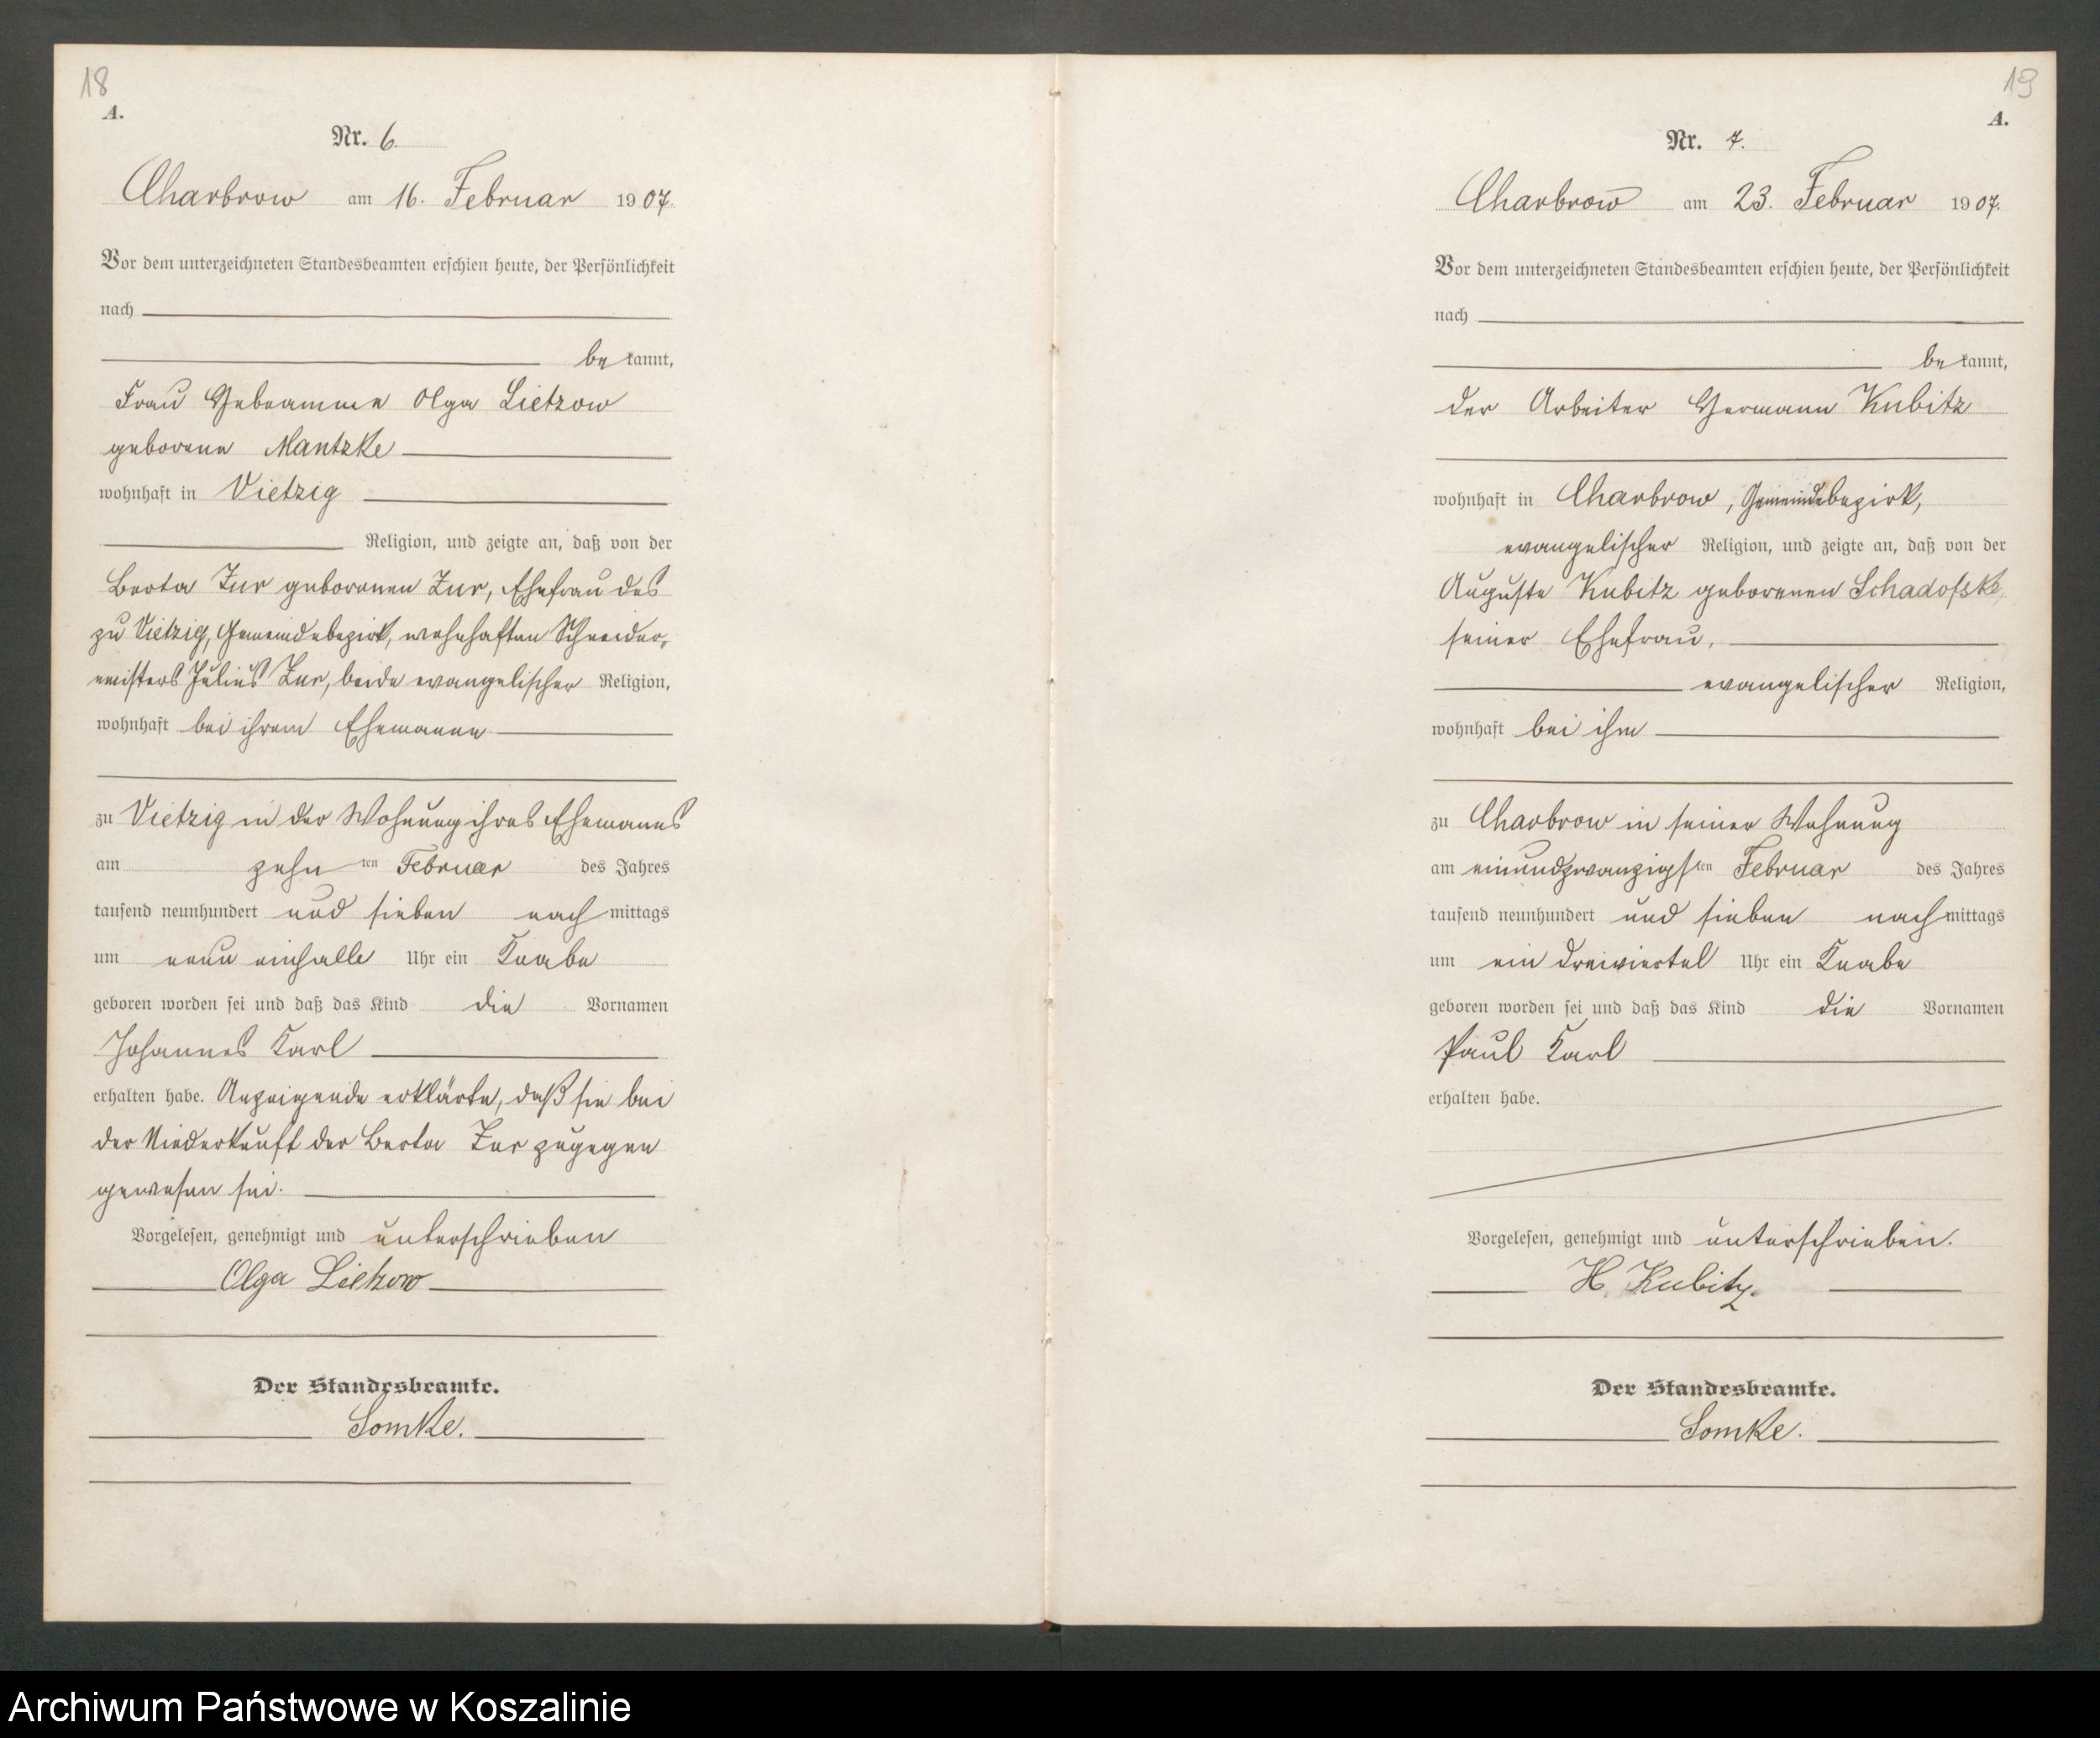 18
A.
Nr. 6.
Charbrow am 16. Februar 1907.
Vor dem unterzeichneten Standesbeamten erschien heute, der Persönlichkeit
nach
bekannt,
Frau Hebeamme Olga Lietzow
geborene Mantzke
wohnhaft in Vietzig
Religion, und zeigte an, daß von der
Berta Zur geborenen Zur, Ehefrau des
zu Vietzig, Gemeindebezirk, wohnhaften Schneider-
meisters Julius Zur, beide evangelischer Religion,
wohnhaft bei ihrem Ehemanne
zu Vietzig in der Wohnung ihres Ehemannes
am zehnten Februar des Jahres
tausend neunhundert und sieben nachmittags
um neun einhalb Uhr ein Knabe
geboren worden sei und daß das Kind die Vornamen
Johannes Karl
erhalten habe. Anzeigende erklärte, daß sie bei
der Niederkunft der Berta Zur zugegen
gewesen sei.
Vorgelesen, genehmigt und unterschrieben
Olga Lietzow
Der Standesbeamte.
Somke.
19
A.
Nr. 7.
Charbrow am 23. Februar 1907.
Vor dem unterzeichneten Standesbeamten erschien heute, der Persönlichkeit
nach
bekannt,
der Arbeiter Hermann Kubitz
wohnhaft in Charbrow, Gemeindebezirk,
evangelischer Religion, und zeigte an, daß von der
Auguste Kubitz geborenen Schadofske,
seiner Ehefrau,
evangelischer Religion,
wohnhaft bei ihm
zu Charbrow in seiner Wohnung
am einundzwanzigsten Februar des Jahres
tausend neunhundert und sieben nachmittags
um ein dreiviertel Uhr ein Knabe
geboren worden sei und daß das Kind die Vornamen
Paul Karl
erhalten habe.
Vorgelesen, genehmigt und unterschrieben.
H. Kubitz.
Der Standesbeamte.
Somke.
Archiwum Państwowe w Koszalinie